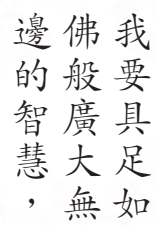 我要具足如
佛般廣大無
邊的智慧，